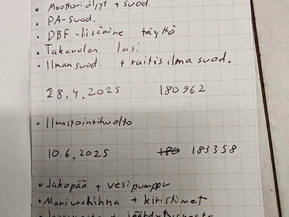 • Moottoriöljyt + suod.
• PA-suod.
• DBF-lisäaine täyttö
• Takavalon lasi
• Ilmansuod + raitisilmasuod.
28.4.2025 180962
• Ilmastointihuolto
10.6.2025 183358
• Jakopää + vesipumppu
• Moniurahihna + kiristimet